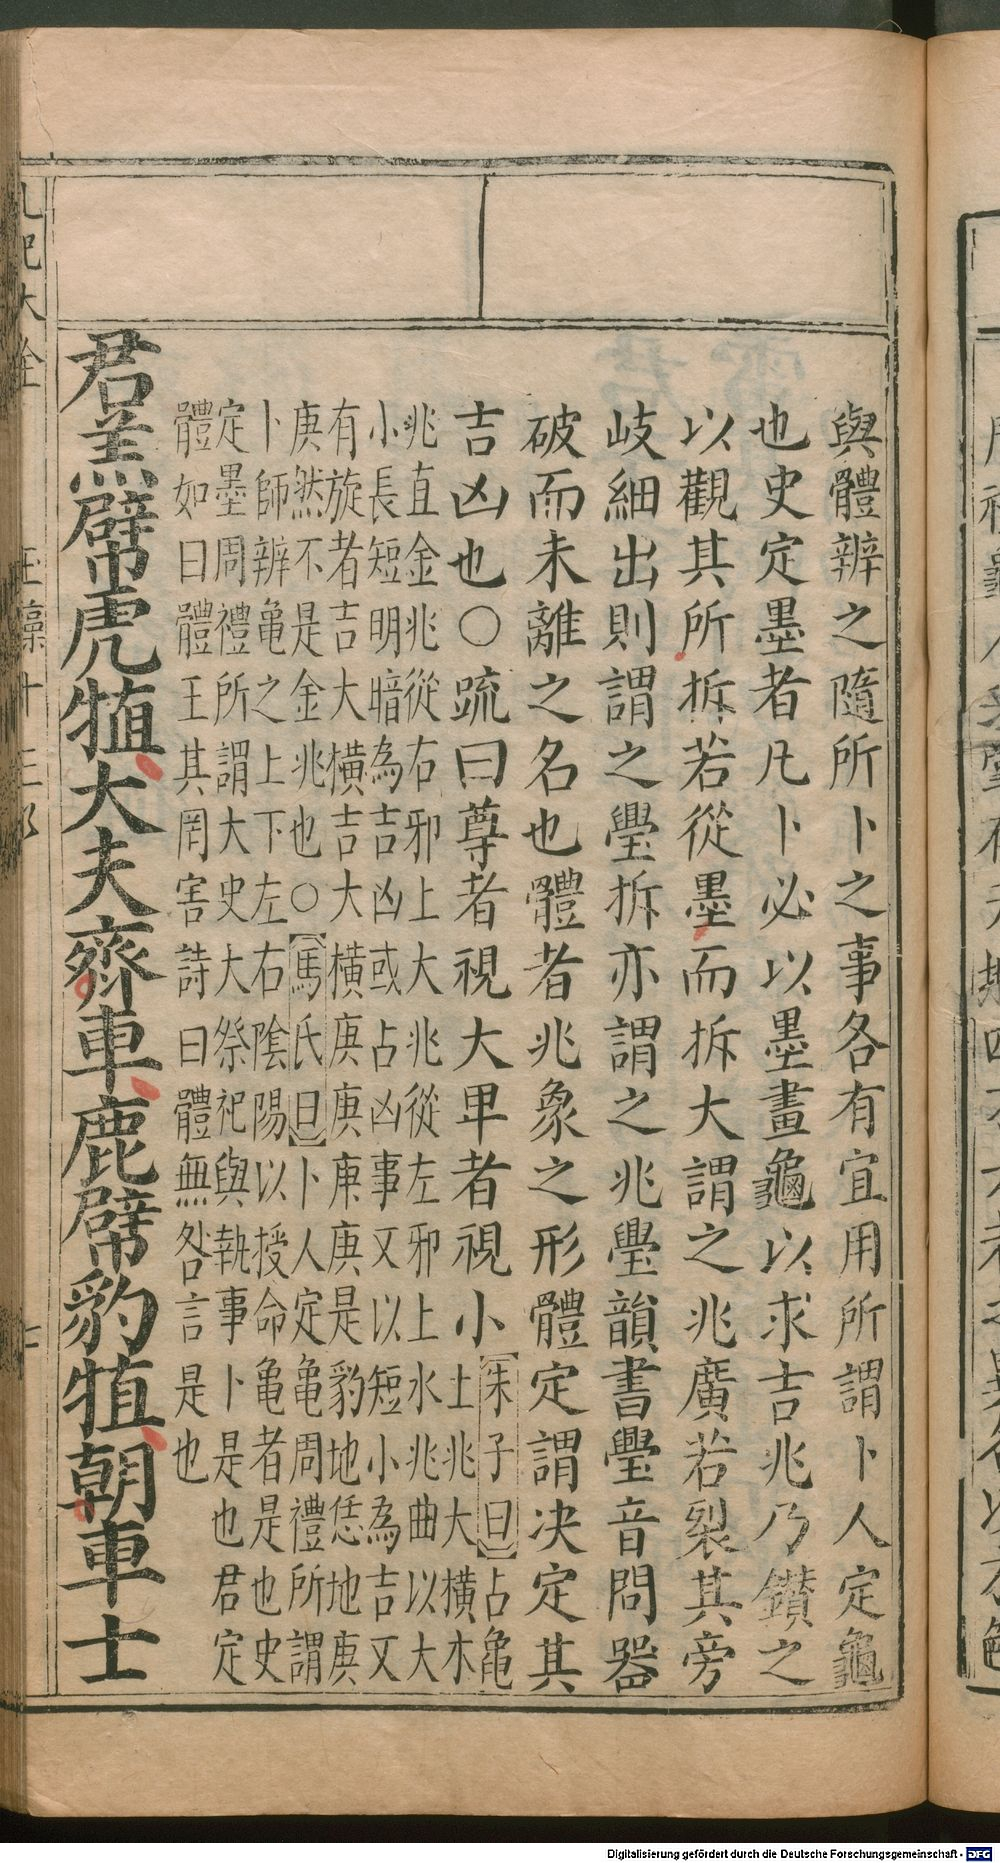 與體辨之隨所卜之事各有宜用所謂卜人定龜
也史定墨者凡卜必以墨畫龜以求吉兆乃鑽之
以觀其所拆若從墨而拆大謂之兆廣若裂其旁
岐細出則謂之璺拆亦謂之兆璺韻書璺音問器
破而未離之名也體者兆象之形體定謂决定其
吉凶也○疏曰尊者視大卑者視小
朱子曰占龜
土兆大橫木
兆直金兆從右邪上大兆從左邪上水兆曲以大
小長短明暗為吉凶或占凶事又以短小為吉又
有旋者吉大橫吉大橫庚庚庚庚是豹地恁地庚
庚然不是金兆也○馬氏曰卜人定龜周禮所謂
卜師辨龜之上下左右陰陽以授命龜者是也史
定墨周禮所謂大史大祭祀與執事卜是也君定
體如曰體王其罔害詩曰體無咎言是也
君羔幦虎犆大夫齊車鹿幦豹犆朝車士
大全
玉藻十三
七
Digitalisierung gefördert durch die Deutsche Forschungsgemeinschaft - DFG